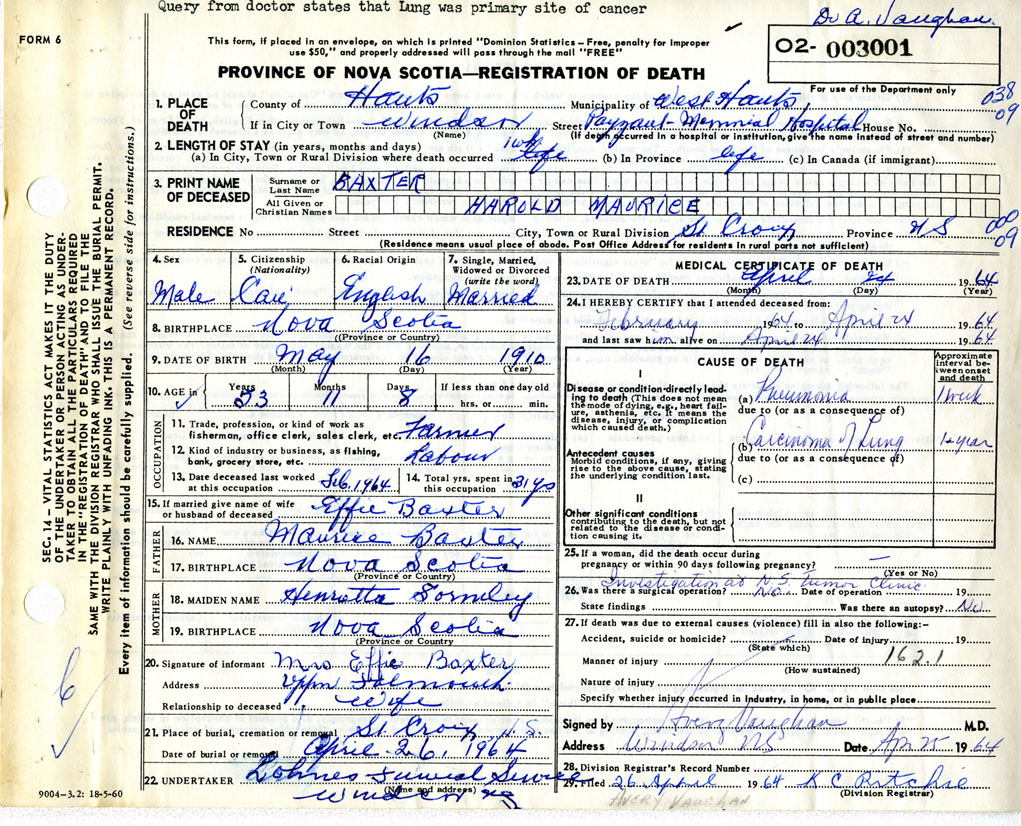 Query from doctor states that Lung was primary site of cancer
Dr A. Vaughan.
FORM 6
O2- 003001
This form, if placed in an envelope, on which is printed "Dominion Statistics – Free, penalty for improper
use $50," and properly addressed will pass through the mail "FREE"
For use of the Department only
PROVINCE OF NOVA SCOTIA—REGISTRATION OF DEATH
038
09
1. PLACE OF DEATH
County of Hants Municipality of West Hants
If in City or Town Windsor Street Payzant Memorial Hospital House No.
(Name) (If death occurred in a hospital or institution, give the name instead of street and number)
2. LENGTH OF STAY (in years, months and days)
(a) In City, Town or Rural Division where death occurred 1 wk life (b) In Province life (c) In Canada (if immigrant)
3. PRINT NAME OF DECEASED
Surname or Last Name BAXTER
All Given or Christian Names HAROLD MAURICE
RESIDENCE No Street City, Town or Rural Division St Croix Province N S
(Residence means usual place of abode. Post Office Address for residents in rural parts not sufficient)
000
09
4. Sex Male
5. Citizenship (Nationality) Can
6. Racial Origin English
7. Single, Married, Widowed or Divorced (write the word) Married
8. BIRTHPLACE Nova Scotia
(Province or Country)
9. DATE OF BIRTH May 16 1910
(Month) (Day) (Year)
10. AGE in Years 53 Months 11 Days 8 If less than one day old hrs. or min.
OCCUPATION
11. Trade, profession, or kind of work as
fisherman, office clerk, sales clerk, etc. Farmer
12. Kind of industry or business, as fishing,
bank, grocery store, etc. Labour
13. Date deceased last worked at this occupation Feb. 1964
14. Total yrs. spent in this occupation 31 yrs
15. If married give name of wife
or husband of deceased Effie Baxter
FATHER
16. NAME Maurice Baxter
17. BIRTHPLACE Nova Scotia
(Province or Country)
MOTHER
18. MAIDEN NAME Henrietta
19. BIRTHPLACE Nova Scotia
(Province or Country)
20. Signature of informant Mrs Effie Baxter
Address Falmouth
Relationship to deceased Wife
21. Place of burial, cremation or removal St Croix N.S.
Date of burial or removal April 26, 1964
22. UNDERTAKER Lohnes Funeral Service
(Name and address)
Windsor NS
MEDICAL CERTIFICATE OF DEATH
23. DATE OF DEATH April 24 1964
(Month) (Day) (Year)
24. I HEREBY CERTIFY that I attended deceased from:
February 1964 to April 24 1964
and last saw him alive on April 24 1964
CAUSE OF DEATH
Approximate interval between onset and death
I
Disease or condition directly leading to death (This does not mean the mode of dying, e.g., heart failure, asthenia, etc. It means the disease, injury, or complication which caused death.)
(a) Pneumonia 1 week
due to (or as a consequence of)
(b) Carcinoma of Lung 1+ year
due to (or as a consequence of)
Antecedent causes
Morbid conditions, if any, giving rise to the above cause, stating the underlying condition last.
(c)
II
Other significant conditions
contributing to the death, but not related to the disease or condition causing it.
25. If a woman, did the death occur during
pregnancy or within 90 days following pregnancy? —
(Yes or No)
Investigation at N.S. Tumor Clinic
26. Was there a surgical operation? No. Date of operation 19
State findings Was there an autopsy? No
27. If death was due to external causes (violence) fill in also the following:-
Accident, suicide or homicide? Date of injury 19
(State which)
162.1
Manner of injury
(How sustained)
Nature of injury
Specify whether injury occurred in industry, in home, or in public place
Signed by Avery Vaughan M.D.
Address Windsor NS Date Ap 25 1964
28. Division Registrar's Record Number
29. Filed 26 April 1964 K C Ritchie
(Division Registrar)
AVERY VAUGHAN
SEC. 14 - VITAL STATISTICS ACT MAKES IT THE DUTY
OF THE UNDERTAKER OR PERSON ACTING AS UNDER-
TAKER TO OBTAIN ALL THE PARTICULARS REQUIRED
IN THE "REGISTRATION OF DEATH" AND TO FILE THE
SAME WITH THE DIVISION REGISTRAR WHO SHALL ISSUE THE BURIAL PERMIT.
WRITE PLAINLY WITH UNFADING INK. THIS IS A PERMANENT RECORD.
Every item of information should be carefully supplied. (See reverse side for instructions.)
9004-3.2: 18-5-60